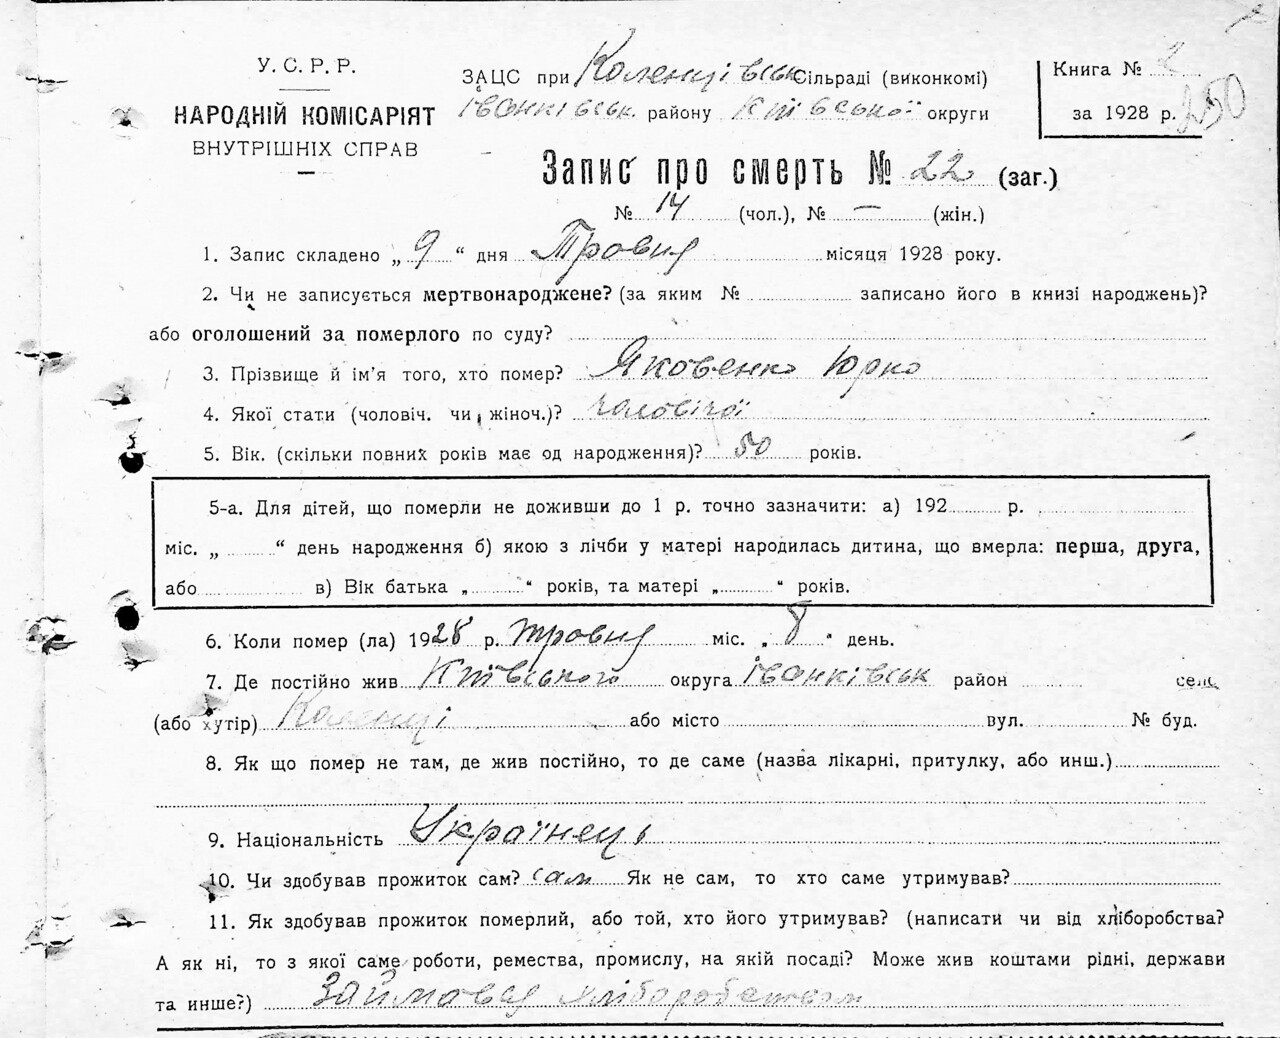 У. С. Р. Р.
НАРОДНІЙ КОМІСАРІЯТ
ВНУТРІШНІХ СПРАВ
ЗАЦС при Коленцівськ Сільраді (виконкомі)
Іванківськ. району Київської округи
Книга №
за 1928 р.
250
Запис про смерть № 22 (заг.)
№ 14 (чол.), № — (жін.)
1. Запис складено „ 9 “ дня Травня місяця 1928 року.
2. Чи не записується мертвонароджене? (за яким № записано його в книзі народжень)?
або оголошений за померлого по суду?
3. Прізвище й ім'я того, хто помер? Яковенко Юрко
4. Якої стати (чоловіч. чи жіноч.)? чоловічої
5. Вік. (скільки повних років має од народження)? 50 років.
5-а. Для дітей, що померли не доживши до 1 р. точно зазначити: а) 192 р.
міс. „ “ день народження б) якою з лічби у матері народилась дитина, що вмерла: перша, друга,
або в) Вік батька „ “ років, та матері „ “ років.
6. Коли помер (ла) 1928 р. травня міс. „ 8 “ день.
7. Де постійно жив Київського округа Іванківськ район село
(або хутір) Коленці або місто вул. № буд.
8. Як що помер не там, де жив постійно, то де саме (назва лікарні, притулку, або инш.)
9. Національність Українець
10. Чи здобував прожиток сам? сам Як не сам, то хто саме утримував?
11. Як здобував прожиток померлий, або той, хто його утримував? (написати чи від хліборобства?
А як ні, то з якої саме роботи, ремества, промислу, на якій посаді? Може жив коштами рідні, держави
та инше?) Займався хліборобством